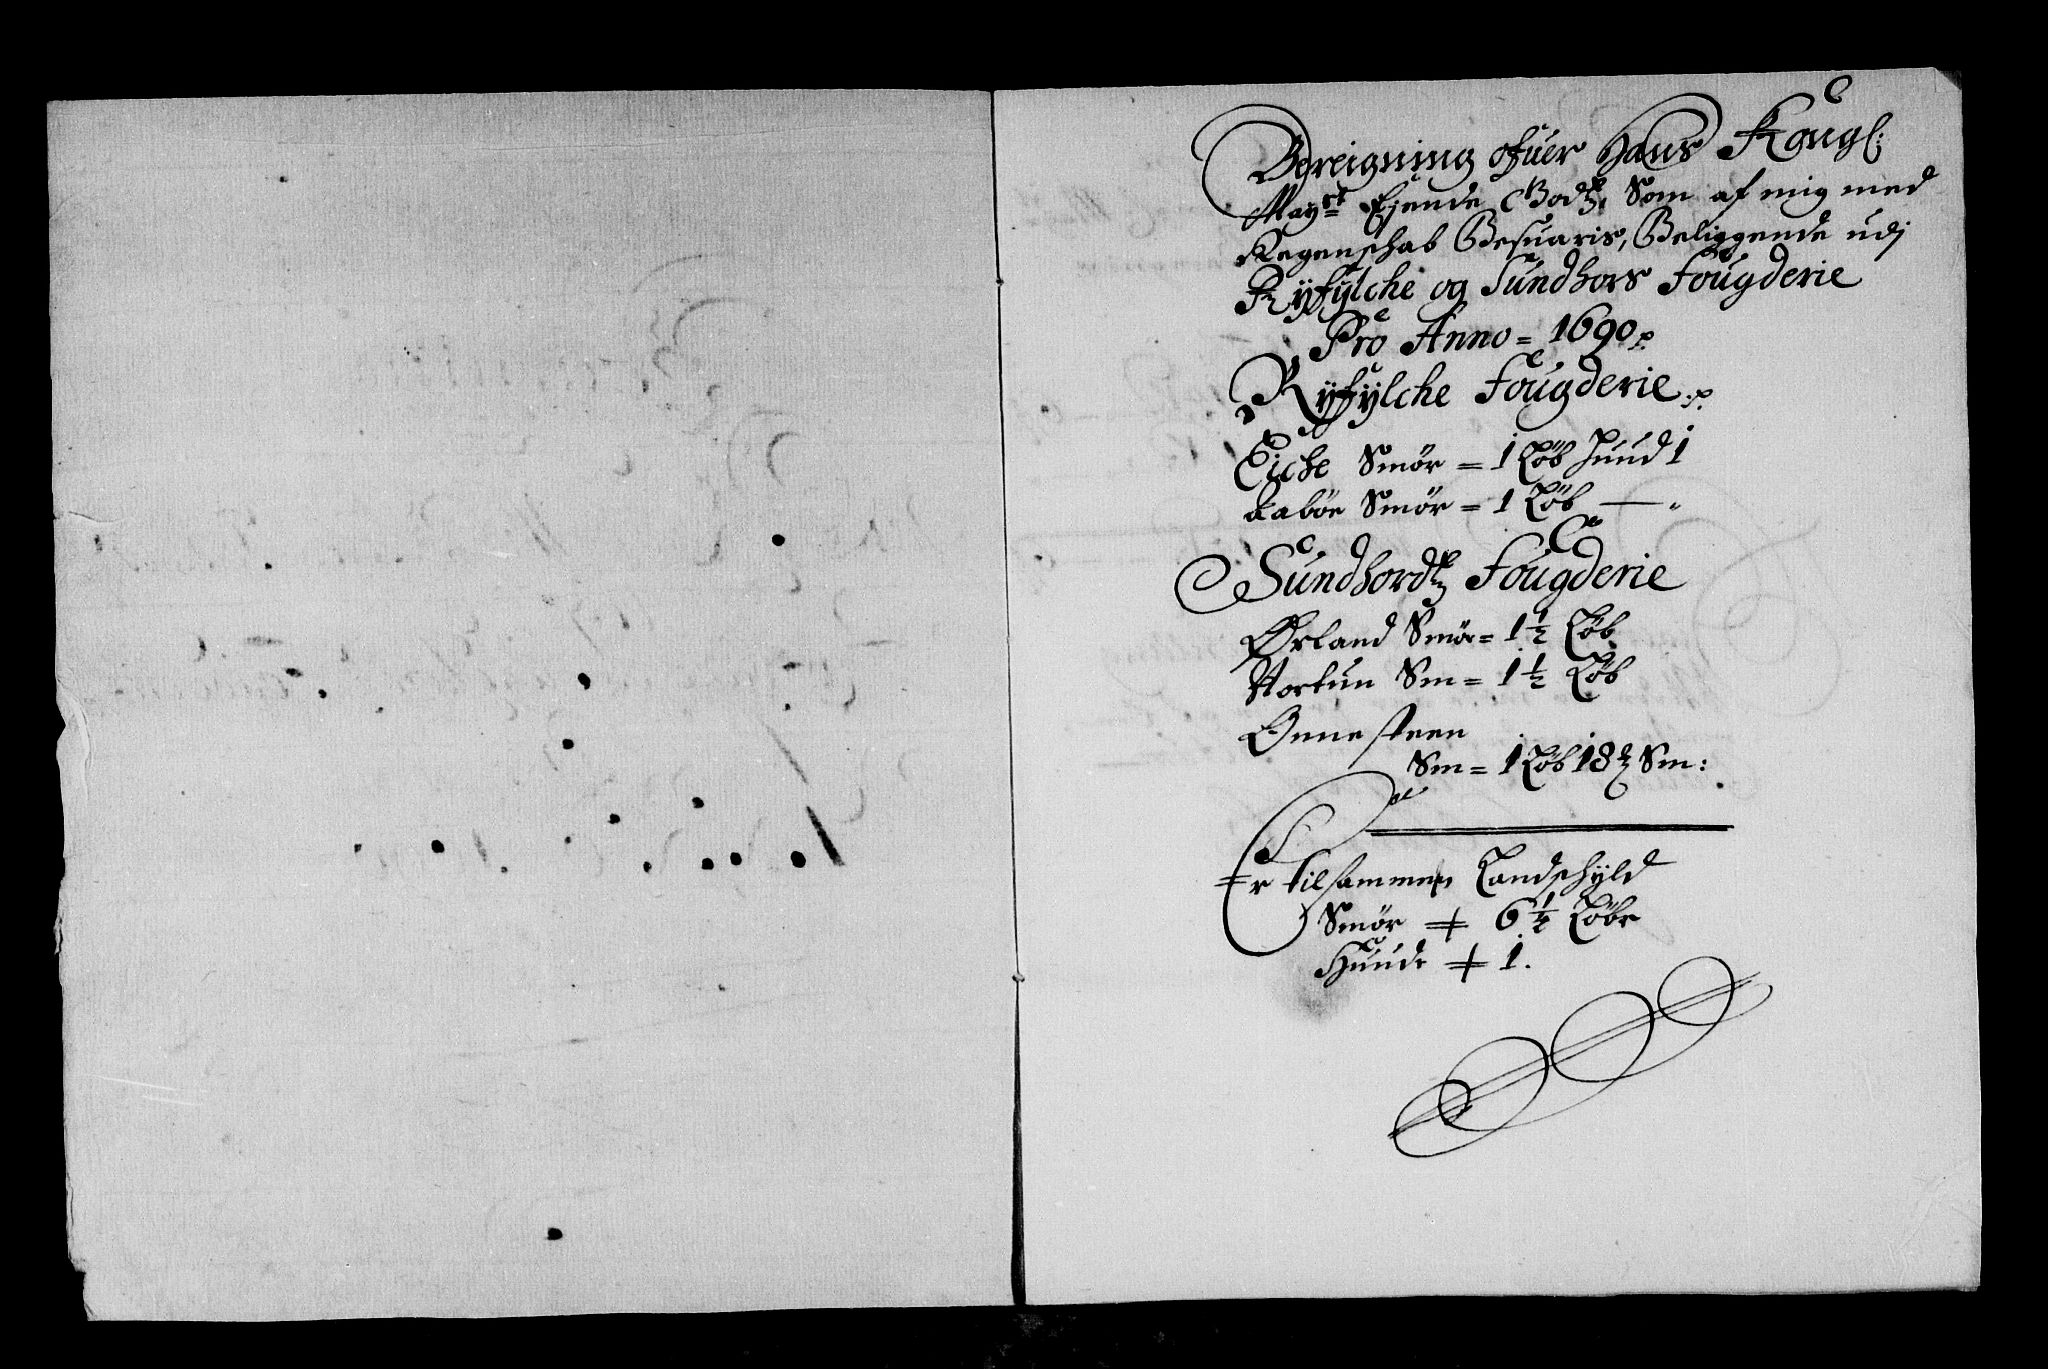 Bereigning ofuer Hans Kongl:
Mayst: Ejende Godtz, Som af mig med
Regenschab Besuaris, Beliggende udj
Ryfylche og Sundhors Fougderie
Pro Anno = 1690
Ryfylche Fougderie
Eiche Smör = 1 Löb huud 1
Aaböe Smör = 1 Löb —
Sundhordtz Fougderie
Ørland Smör = 1½ Löb
Hortun Sm = 1½ Löb
Onnesteen
Sm = 1 Löb 18 Sm:
Er tilsammen Landschyld
Smör 6¼ Löbe
Huude 1.